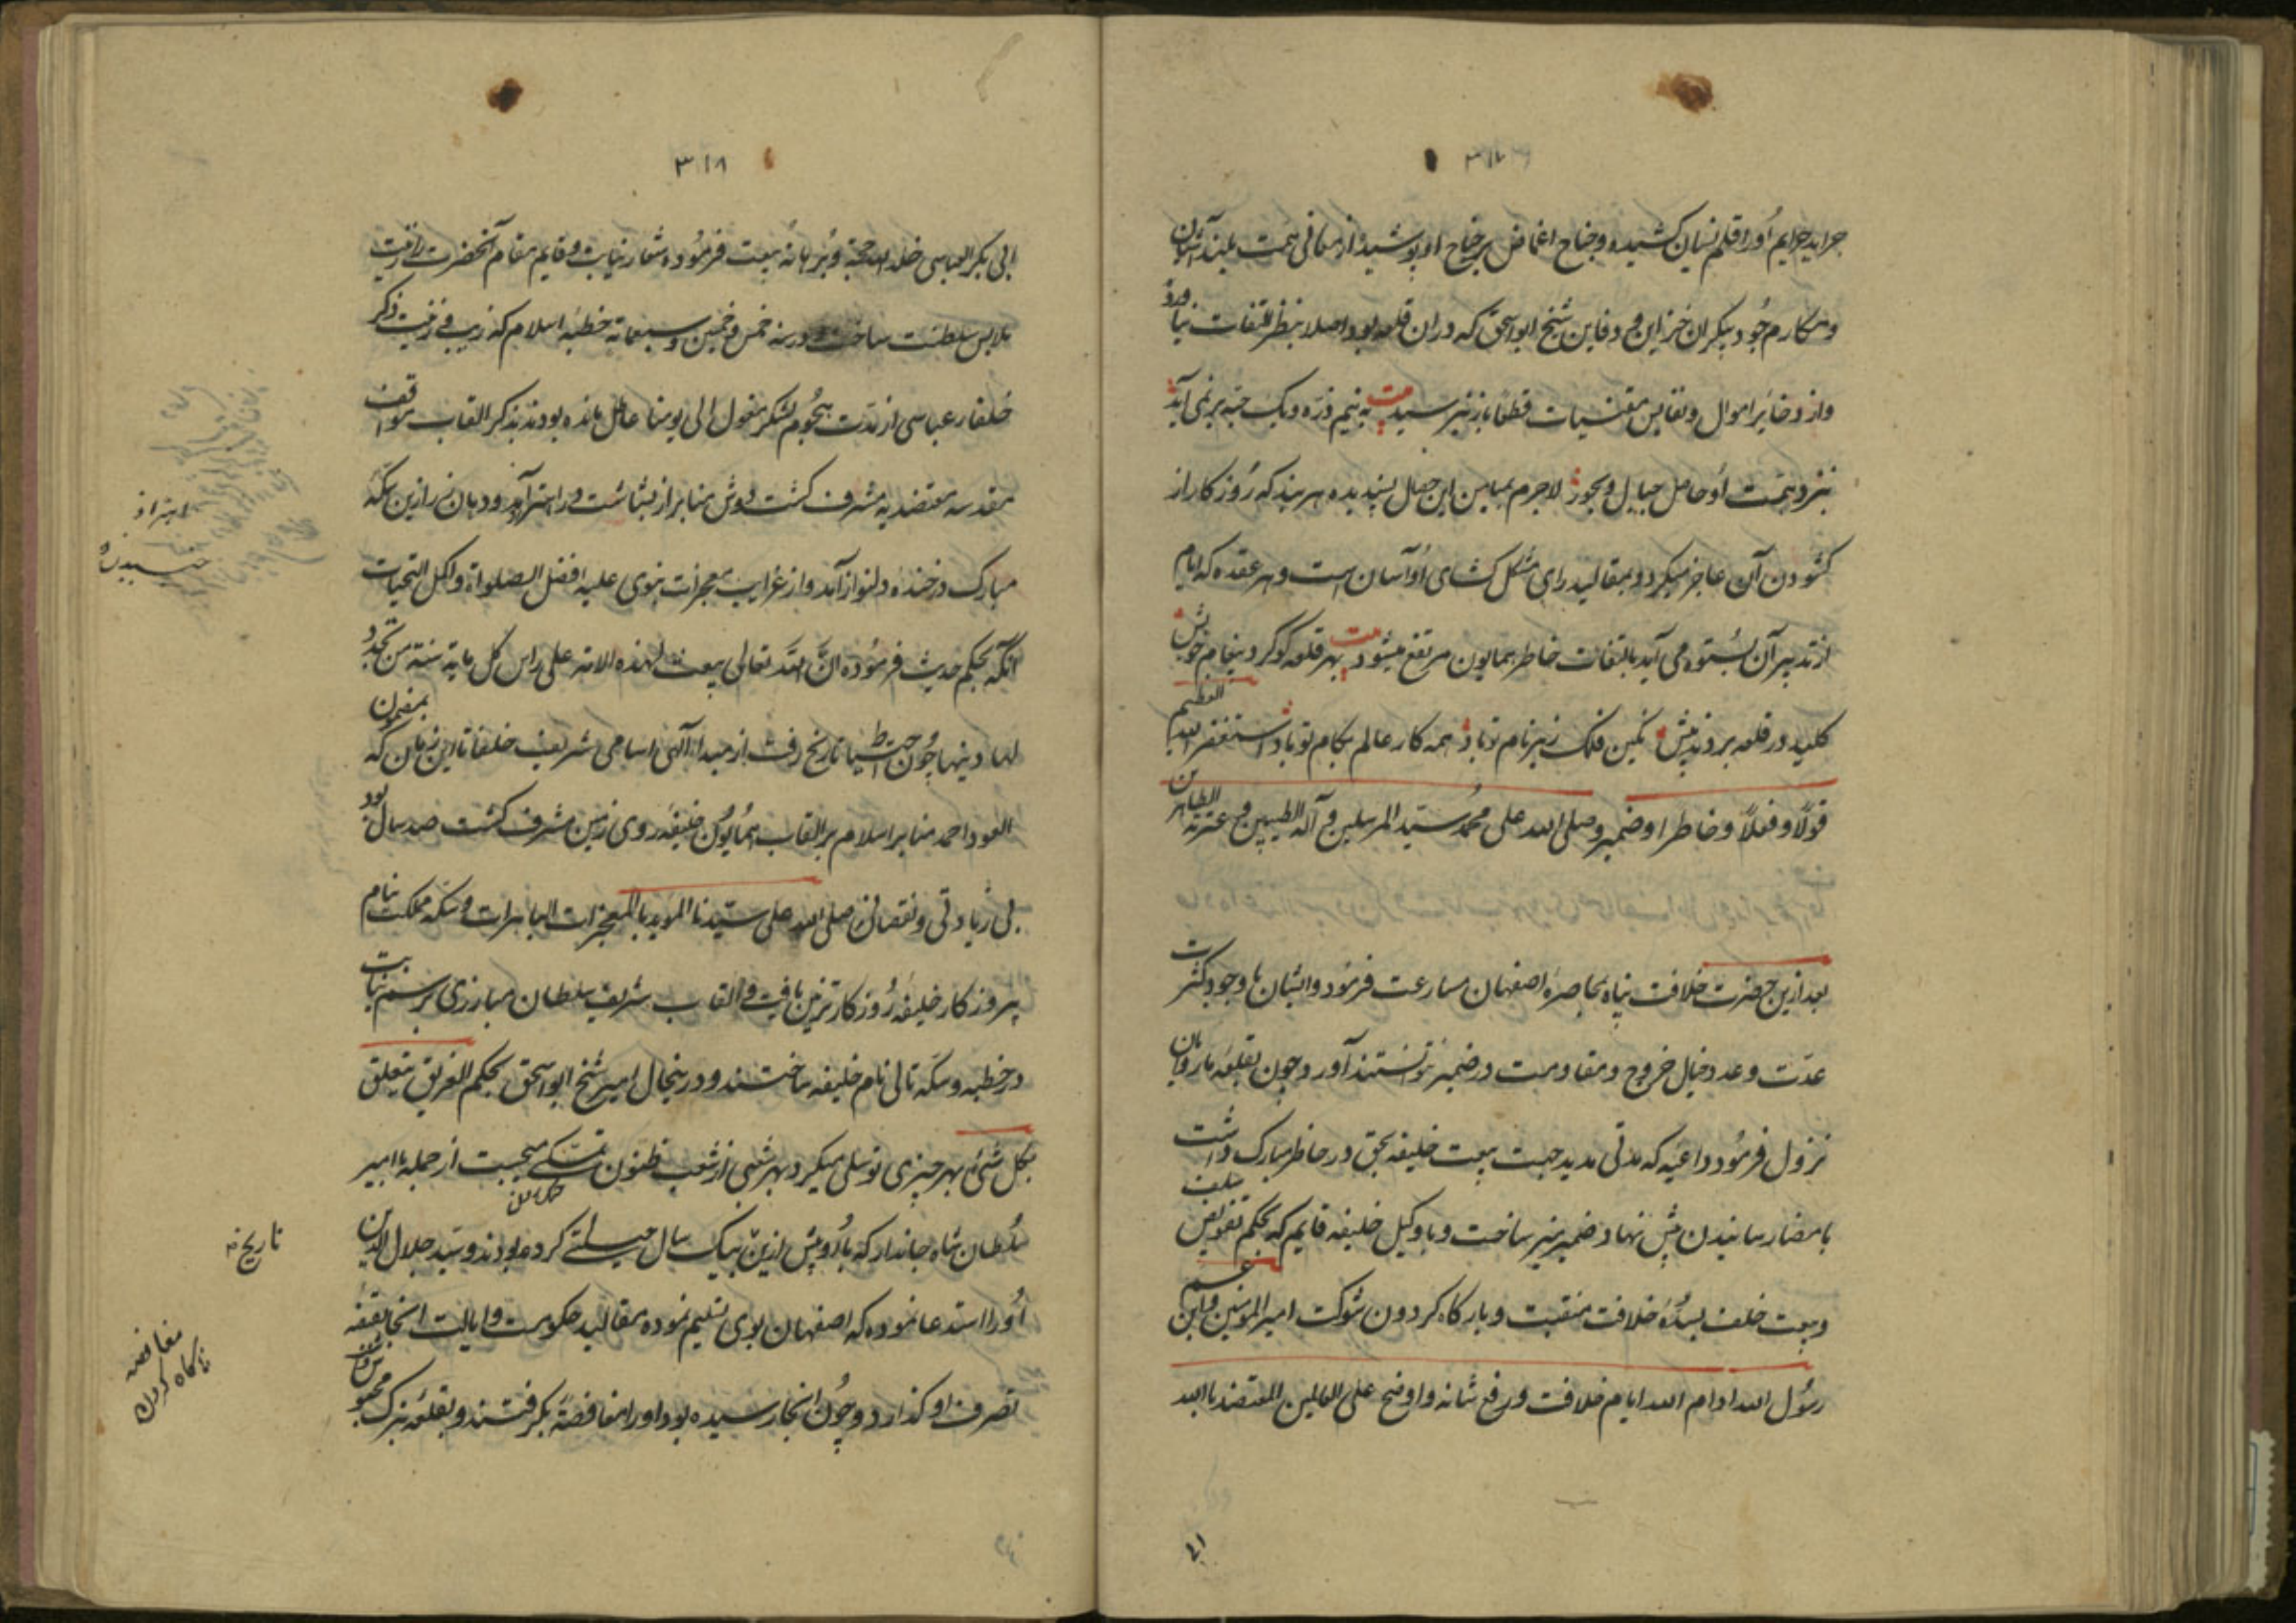 ۳۱۷
جراید جرایم او را قلم نسیان کشیده و جناح اغماض بر جناح او پوشید و از معانی همت بلند آشیان
و مکارم جود بیکران خزاین و دفاین شیخ ابواسحق که در ان قلعه بود اصلا بنظر التفات نیاورد
و از ذخایر اموال و نفایس مقتنیات قطعا باز نپرسید بیت به نیم ذره و یک حبه برنمی آید
بنزد همت او حاصل جبال و بحور لاجرم بمیامن این خصال پسندیده هر بند که روزکار از
کشودن آن عاجز میکردد بمقالید رای مشکل کشای او آسان است و هر عقده که ایام
از تدبیر آن بستوه می آید بالتفات خاطر همایون مرتفع میشود بیت بهر قلعه کو کرد پیغام خویش
کلید در قلعه بردند پیش نکین فلک زیر نام تو باد همه کار عالم بکام تو باد استغفر الله العظیم
قولا و فعلا و خاطرا و ضمیر وصلی الله علی محمد سید المرسلین و آله الطیبین و عترته الطاهرین
بعد ازین حضرت خلافت پناه بمحاصره اصفهان مسارعت فرمود و ایشان با وجود کثرت
عدت و عدد خیال خروج و مقاومت در ضمیر نتوانستند آورد و چون بقلعه ماروانان
نزول فرمود داعیه که مدتی مدید جهت بیعت خلیفه بحق در خاطر مبارک داشت
بامضا رسانیدن پیش نهاد ضمیر منیر ساخت و با وکیل خلیفه قایم که بحکم تفویض سلف
و بیعت خلف بسده خلافت منقبت و بارکاه کردون شوکت امیر المومنین و ابن عم
رسول الله ادام الله ایام خلافت و رفع شانه و اوضح علی العالمین المعتضد بالله
۴۱
۳۱۸
ابی بکر العباسی خلد الله حجبة و برهانه بیعت فرموده شعار نیابت و قایم مقام آنحضرت را زینت
ملابس سلطنت ساخت و در سنه خمس و خمسین و سبعمایة خطبه اسلام که زیب و زینت ذکر
خلفاء عباسی از مدت هجوم لشکر مغول الی یومنا عاطل مانده بودند بذکر القاب مواقف
مقدسه معتضدیه مشرف کشت دوش منابر از بشاشت در اهتزاز آمد و دهان زر ازین سکه
مبارک در خنده دلنواز آمد و از غرایب معجزات نبوی علیه افضل الصلواة و اکمل التحیات
آنکه بحکم حدیث فرموده ان الله تعالی یبعث لهذه الامة علی راس کل مایة سنة من یجدد
لها دینها چون احتیاط تاریخ رفت از مبدا آلهی اسامی شریف خلفا تا این زمان که بمضمون
العود احمد منابر اسلام بر القاب همایون خلیفه روی زمین مشرف کشت صد سال بود
بی زیادتی و نقصان صلی الله علی سیدنا الموید بالمعجزات الباهرات و سکه مملکت بنام
پیروز کار خلیفه روزکار تزیین یافت و القاب شریف سلطان مبارزی برسم نیابت
در خطبه و سکه تالی نام خلیفه ساختند و درینحال امیر شیخ ابواسحق بحکم الغریق یتعلق
بکل شئ بهر چیزی توسلی میکرد بهر شبی از شعب ظنون تمسکی میجست از جمله با امیر
سلطان شاه جاندار که با او پیش ازین بیک سال حیلتی کرده بودند و سید جلال الدین
او را استدعا نموده که اصفهان بوی تسلیم نموده مقالید حکومت و ایالت انجا بقبضه
تصرف او کذارد و چون انجا رسیده بود او را مغافصة بکرفتند و بقلعه تبرک محبوس
اهتزاز
جنبیدن
تاریخ
مغافصه
ناکاه کردن